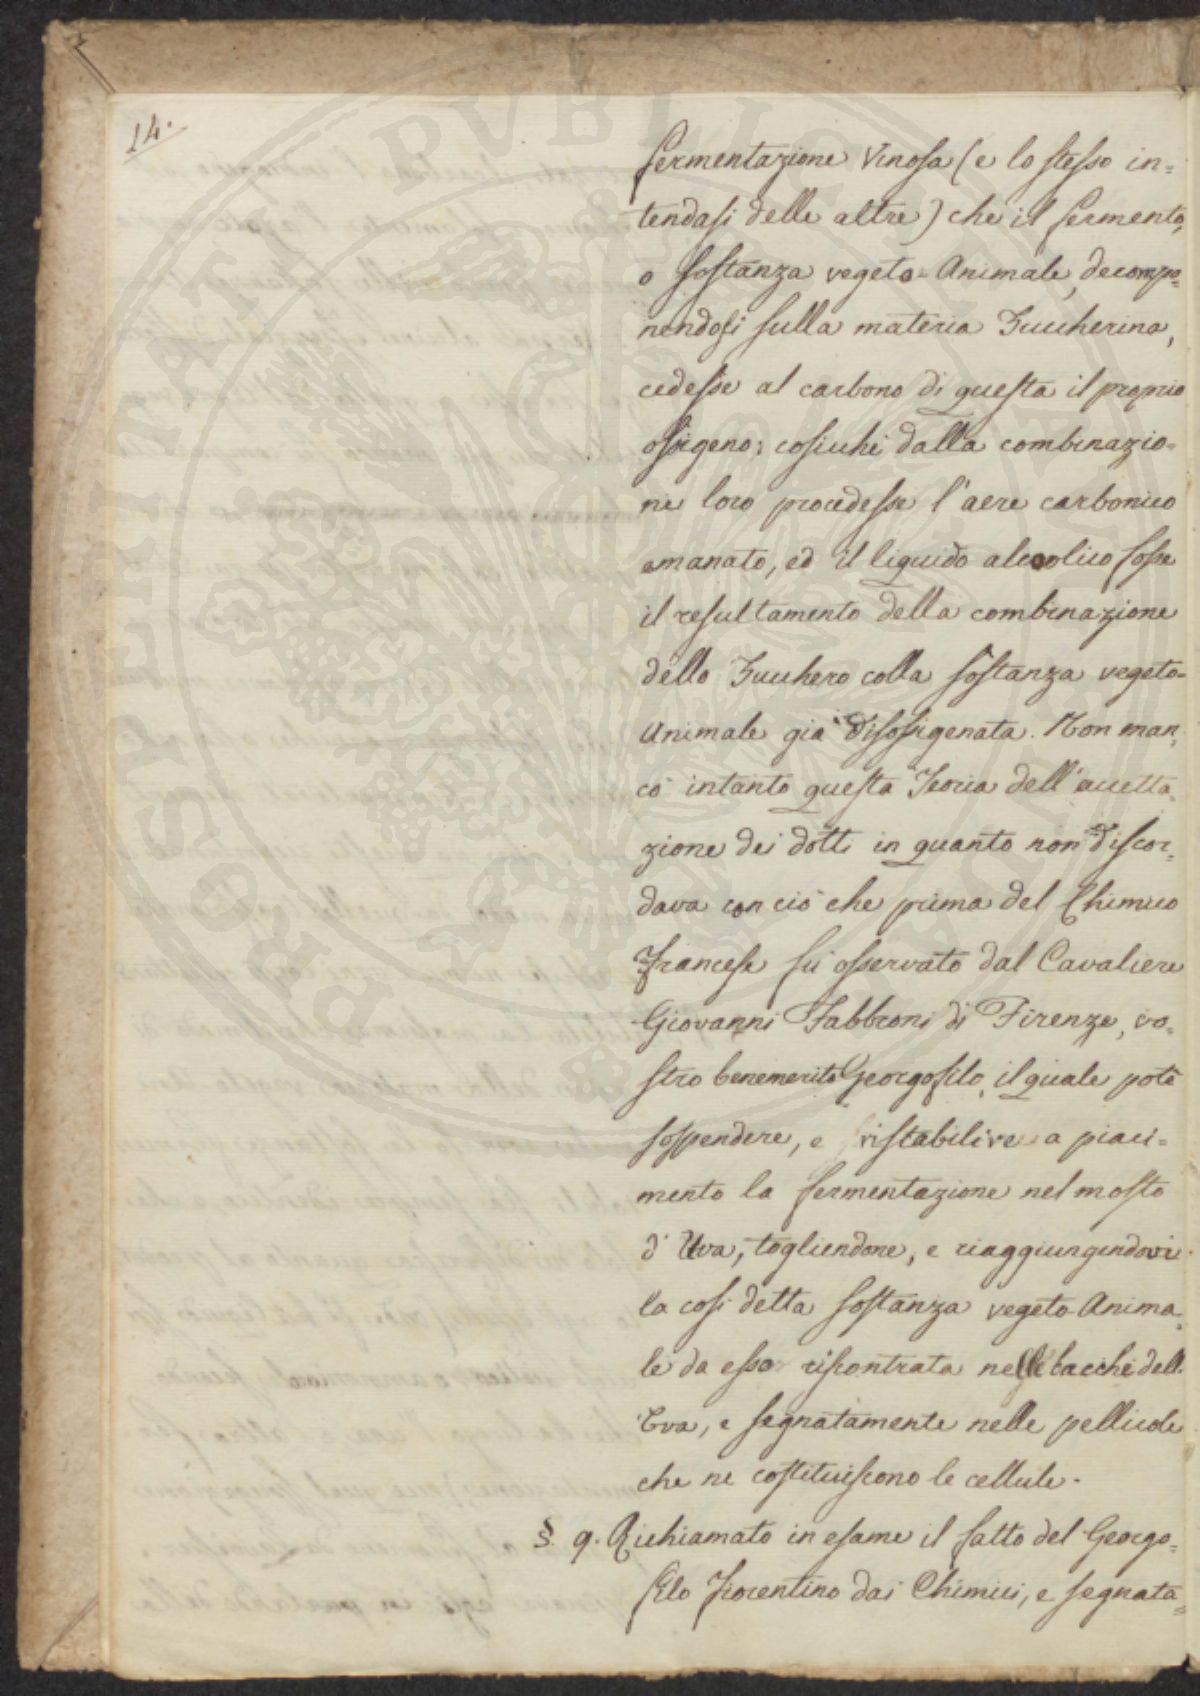 14.
fermentazione Vinosa (e lo stesso in=
tendasi delle altre) che il fermento,
o sostanza vegeto-Animale, decompo=
nendosi sulla materia Zuccherina,
cedesse al carbono di questa il proprio
ossigeno; cosicché dalla combinazio=
ne loro procedesse l'aere carbonico
emanato, ed il liquido alcoolico fosse
il resultamento della combinazione
dello Zucchero colla sostanza vegeto=
Animale già disossigenata. Non man,
cò intanto questa Teoria dell'accetta=
zione dei dotti in quanto non discor=
dava con ciò che prima del Chimico
Francese fù osservato dal Cavaliere
Giovanni Fabbroni di Firenze, vo=
stro benemerito Georgofilo, il quale potè
sospendere, e ristabilire a piaci=
mento la fermentazione nel mosto
d'Uva, togliendone, e riaggiungendovi
la così detta sostanza vegeto-Anima=
le da esso riscontrata nelle bacche dell'
Uva, e segnatamente nelle pellicole
che ne costituiscono le cellule.
§. 9. Richiamato in esame il fatto del Georgo=
filo Fiorentino dai Chimici, e segnata=
PROSPERITATI PVBLICAE